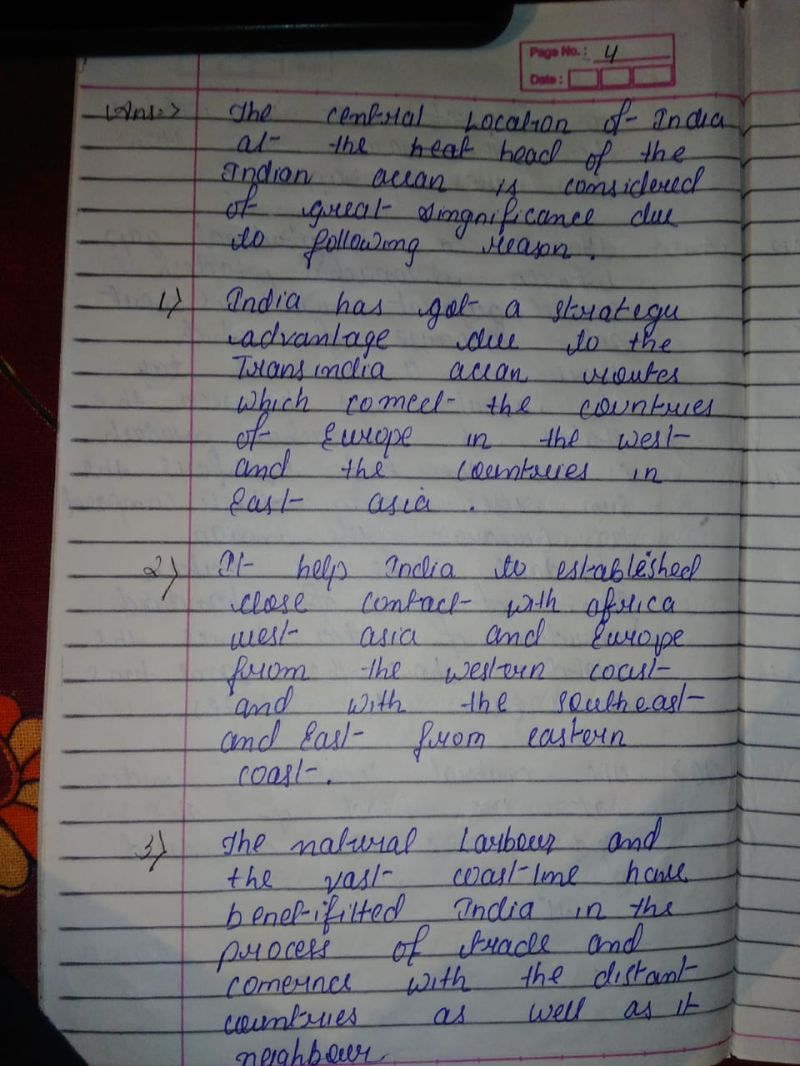 Page No.: 4
Date:
Ans:->
The central Location of India
at the heat head of the
Indian ocean is considered
of great singnificance due
to following reason.
1) India has got a strategu
advantage due to the
Transindia ocean routes
which comect the countries
of Europe in the west
and the countries in
East asia.
2) It help India to established
close contact with africa
west asia and Europe
from the western coast
and with the southeast
and East from eastern
coast.
3) The natural Larbour and
the vast coastline have
benetifitted India in the
process of trade and
comernce with the distant
countries as well as it
neighbour.